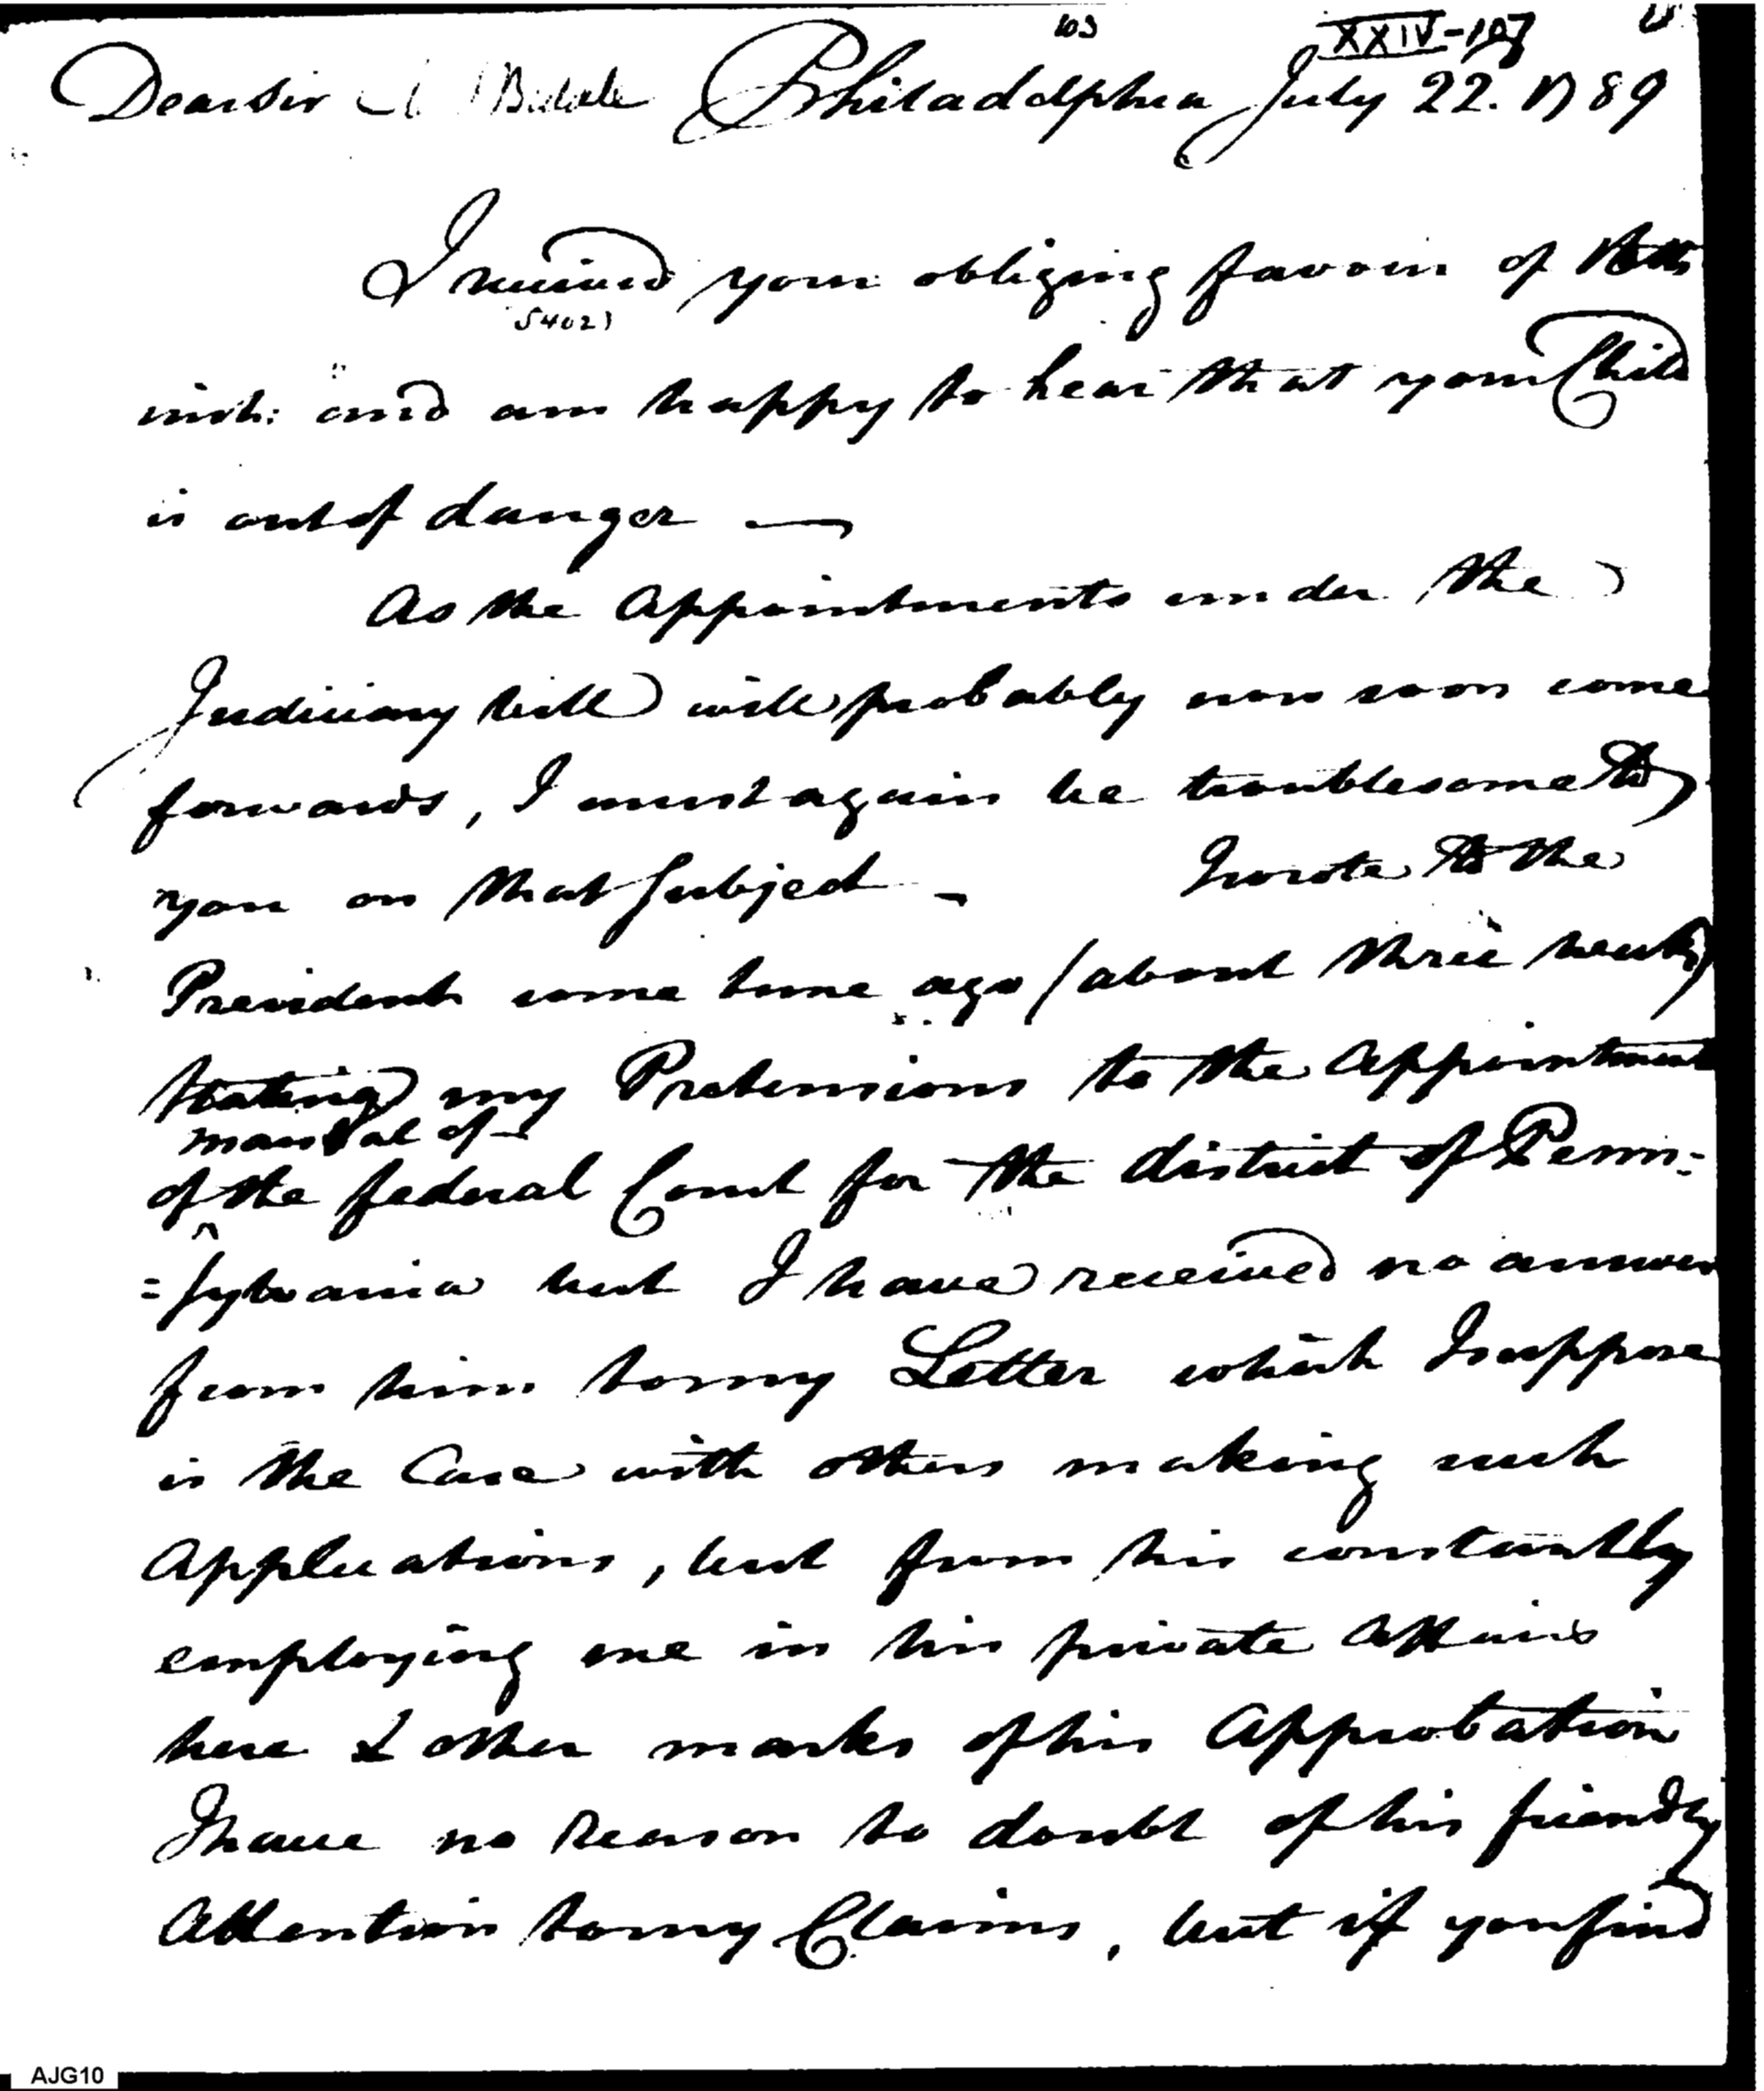 103 XXIV-107
Dear Sir C Biddle Philadelphia July 22. 1789
I received your obliging favour of
(5402)
inst: and am happy to hear that your Child
is out of danger —
As the Appointments under the
Judiciary bill will probably now soon come
forwards, I must again be troublesome to
you on that Subject - I wrote to the
President some time ago (about three weeks)
stating my Pretensions to the Appointment
marshal of
of the federal Court for the district of Penn:
=sylvania but I have received no answer
from him to my Letter which I suppose
is the Case with others making such
Applications, but from his constantly
employing me in his private Affairs
here & other marks of his Approbation
I have no reason to doubt of his friendly
Attention to my Claims, but if you find
AJG10